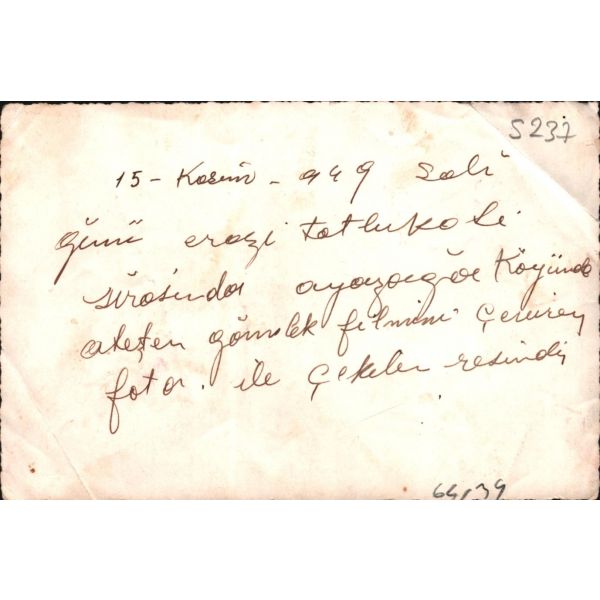 S237
15 - Kasım - 949 Salı
günü erazi tatbikatı
sırasında ayazağa Köyünde
ateşten gömlek filmini Çeviren
foto. ile Çekilen resimdir
64/39